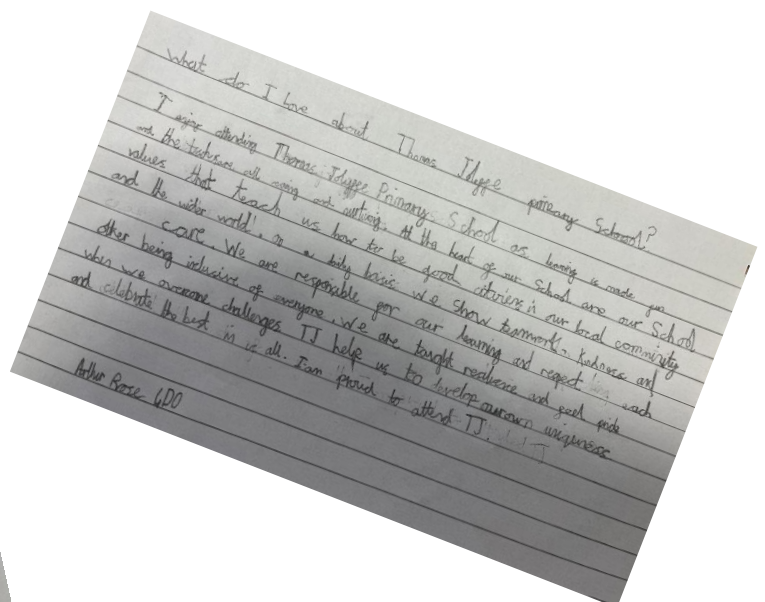 What do I love about Thomas Jolyffe primary School?
I enjoy attending Thomas Jolyffe Primary School as learning is made fun
and the teachers are all caring and nurturing. At the heart of our School are our School
values that teach us how to be good citizens in our local community
and the wider world. On a daily basis we show teamwork, kindness and
care. We are responsible for our learning and respect each
other being inclusive of everyone. We are taught resilience and feel pride
when we overcome challenges. TJ help us to develop our own uniqueness
and celebrate the best in us all. I am proud to attend TJ.
Arthur 6DO